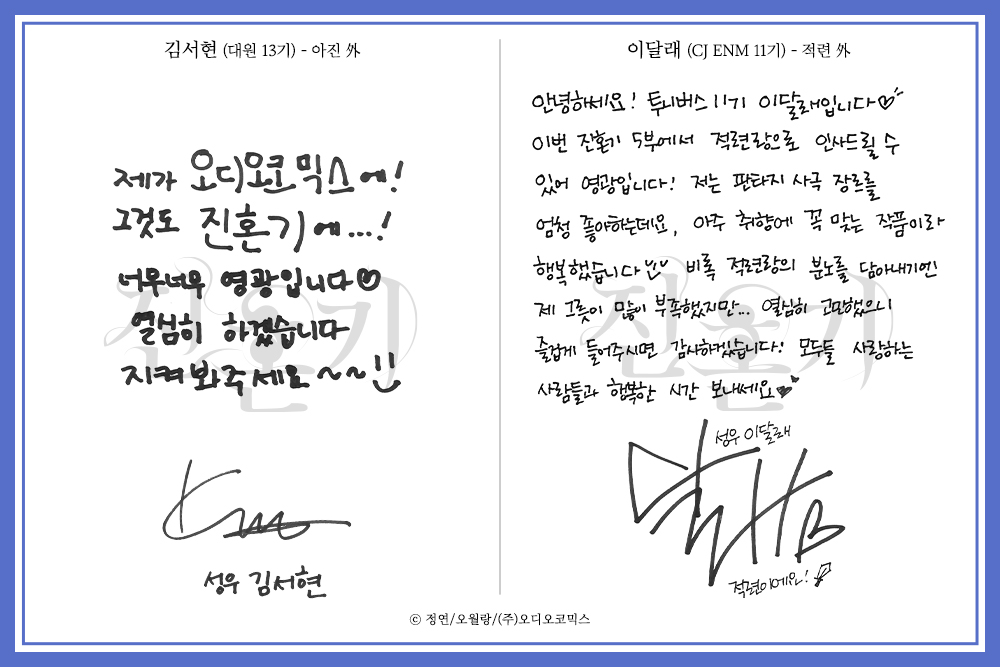 김서현 (대원 13기) - 아진 外
제가 오디오코믹스에!
그것도 진혼기에...!
너무너무 영광입니다♡
열심히 하겠습니다
지켜봐주세요~~!!
성우 김서현
이달래 (CJ ENM 11기) - 적련 外
안녕하세요! 투니버스 11기 이달래입니다♡
이번 진혼기 5부에서 적련랑으로 인사드릴 수
있어 영광입니다! 저는 판타지 사극 장르를
엄청 좋아하는데요, 아주 취향에 꼭 맞는 작품이라
행복했습니다 비록 적련랑의 분노를 담아내기엔
제 그릇이 많이 부족했지만... 열심히 고민했으니
즐겁게 들어주시면 감사하겠습니다! 모두들 사랑하는
사람들과 행복한 시간 보내세요♥
성우 이달래
진혼기
진혼기
ⓒ 정연/오월랑/(주)오디오코믹스